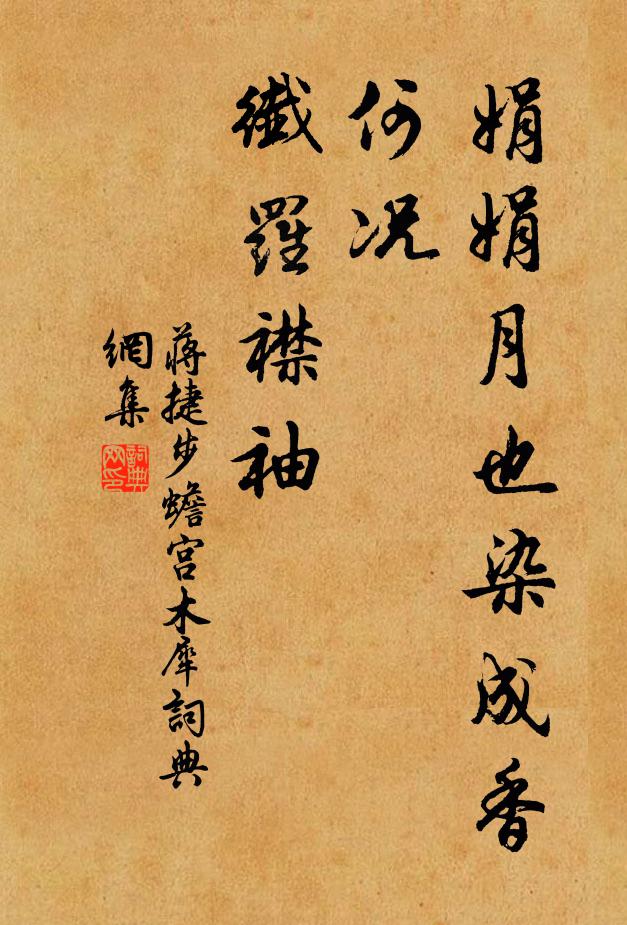 娟娟月也染成香
何况
纖羅襟袖
蔣捷步蟾宮木犀詞典
網集
詞典
网印